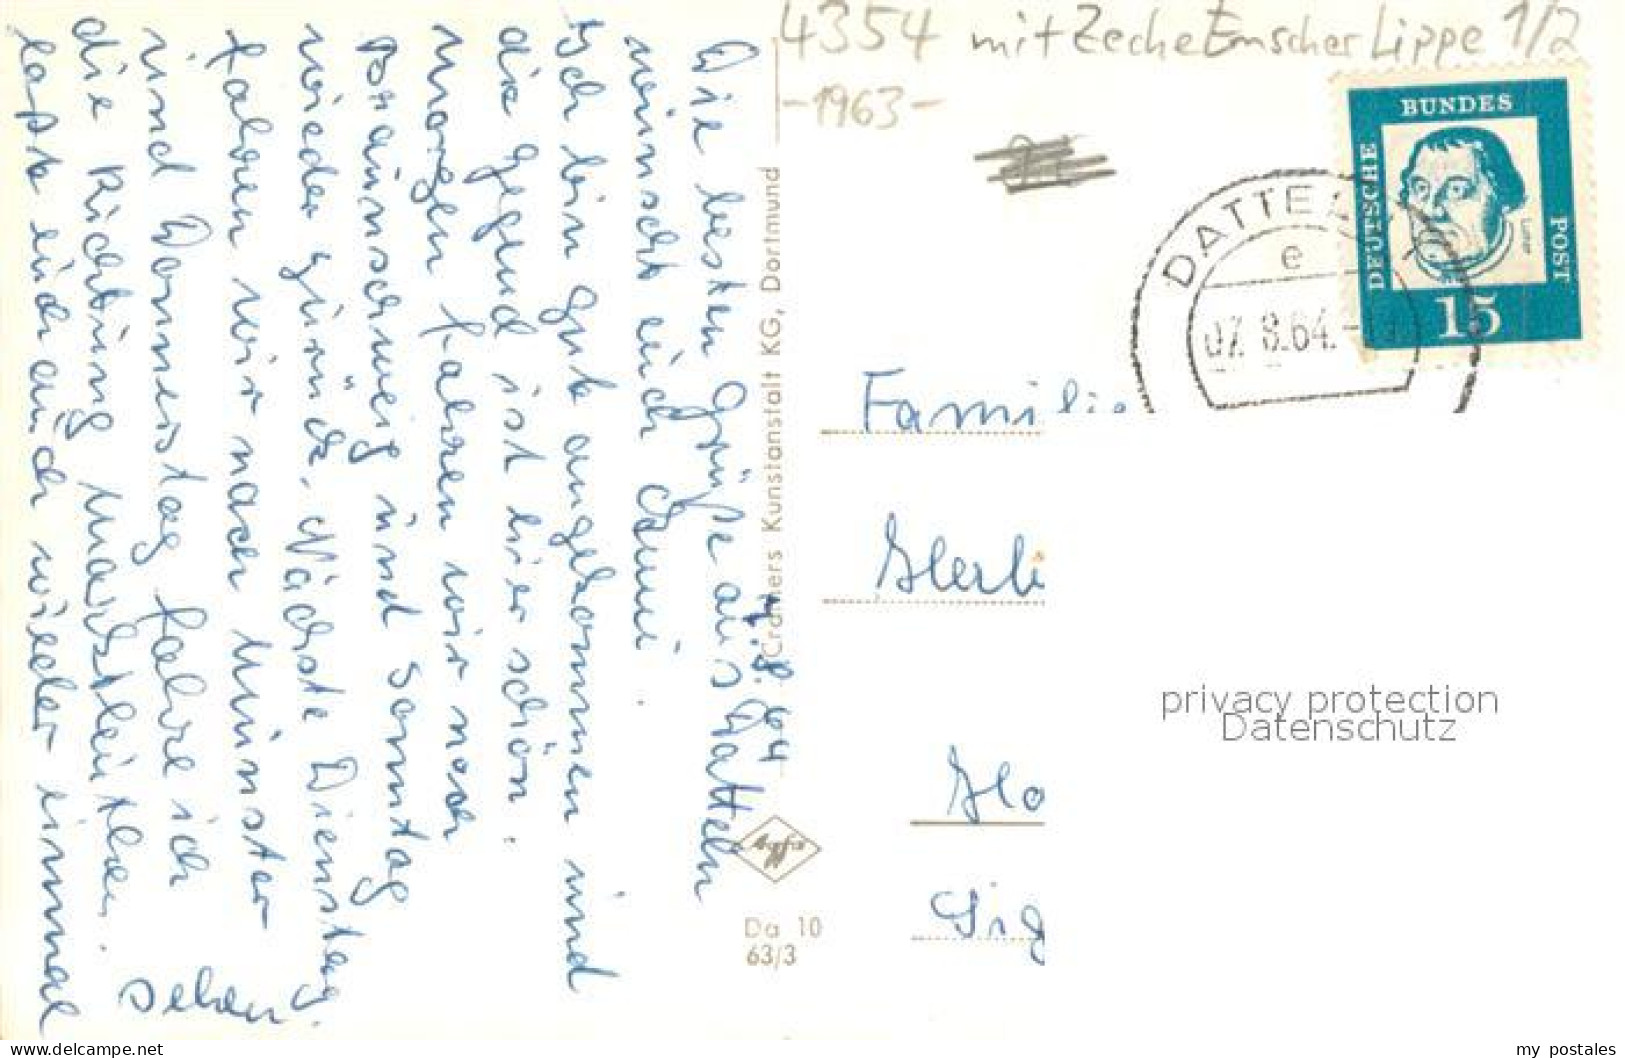 4354 mit Zeche Emscher Lippe 1/2
-1963-
DEUTSCHE BUNDES POST
Luther
15
DATTELN
e
07. 8.64.
Familie
privacy protection
Datenschutz
7.8.64
Die besten Grüße aus Datteln
wünscht euch
Ich bin gut angekommen und
die gegend ist hier schön.
Morgen fahren wir nach
Braunschweig und Sonntag
wieder zurück. Nächste Dienstag
fahren wir nach Münster
und Donnerstag fahre ich
die Richtung
laßt euch auch wieder einmal
sehen.
Cramers Kunstanstalt KG, Dortmund
Da 10
63/3
my_postcards_de
my postales